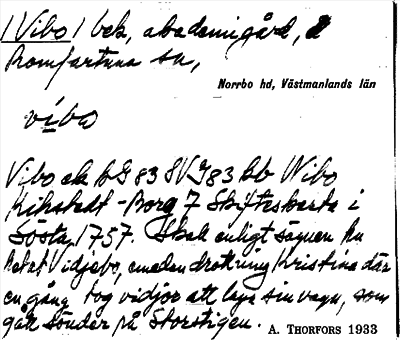 /Vibo/ bek, akademigård,
Romfartuna sn,
Norrbo hd, Västmanlands län
víbo
Vibo ek bG 83 SVG 83 kb Wibo
Kihstedt - Borg 7 Skifteskarta i
Sösta, 1757. Skall enligt sägnen ha
hetat Vidjebo, emedan drottning Kristina där
en gång tog vidjor att laga sin vagn, som
gått sönder på Storstigen. A. THORFORS 1933